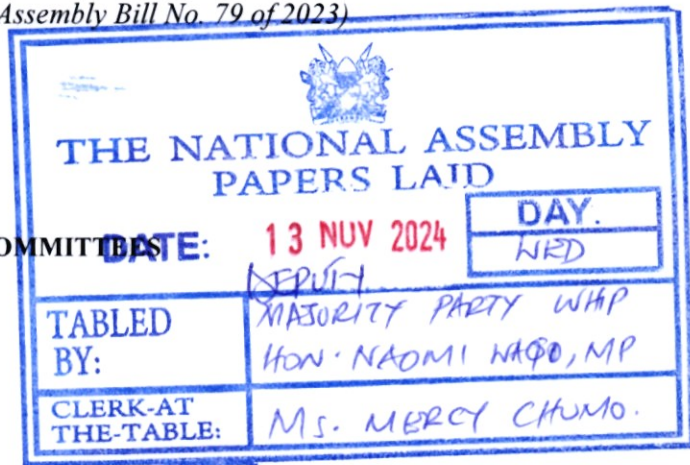 Assembly Bill No. 79 of 2023)
THE NATIONAL ASSEMBLY
PAPERS LAID
OMMITTEES
DATE: 13 NOV 2024
DAY.
WED
DEPUTY
TABLED BY:
MAJORITY PARTY WHIP
HON. NAOMI WAQO, MP
CLERK-AT THE-TABLE:
Ms. MERCY CHUMO.